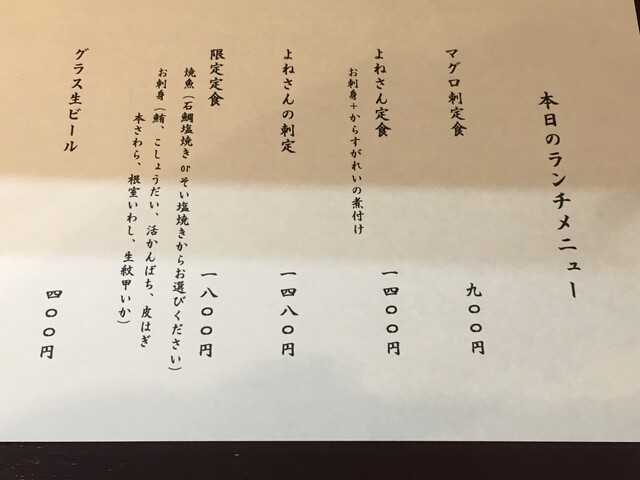 本日のランチメニュー
マグロ刺定食
九〇〇円
よねさん定食
一四〇〇円
お刺身+からすがれいの煮付け
よねさんの刺定
一四八〇円
限定定食
一八〇〇円
焼魚(石鯛塩焼きorそい塩焼きからお選びください)
お刺身(鮪、こしょうだい、活かんぱち、皮はぎ
本さわら、根室いわし、生紋甲いか)
グラス生ビール
四〇〇円